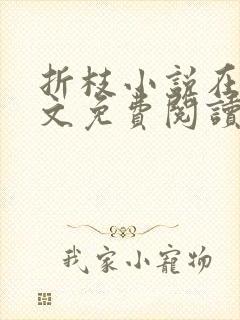 折枝小说在
文免費閱讀
我家小寵物